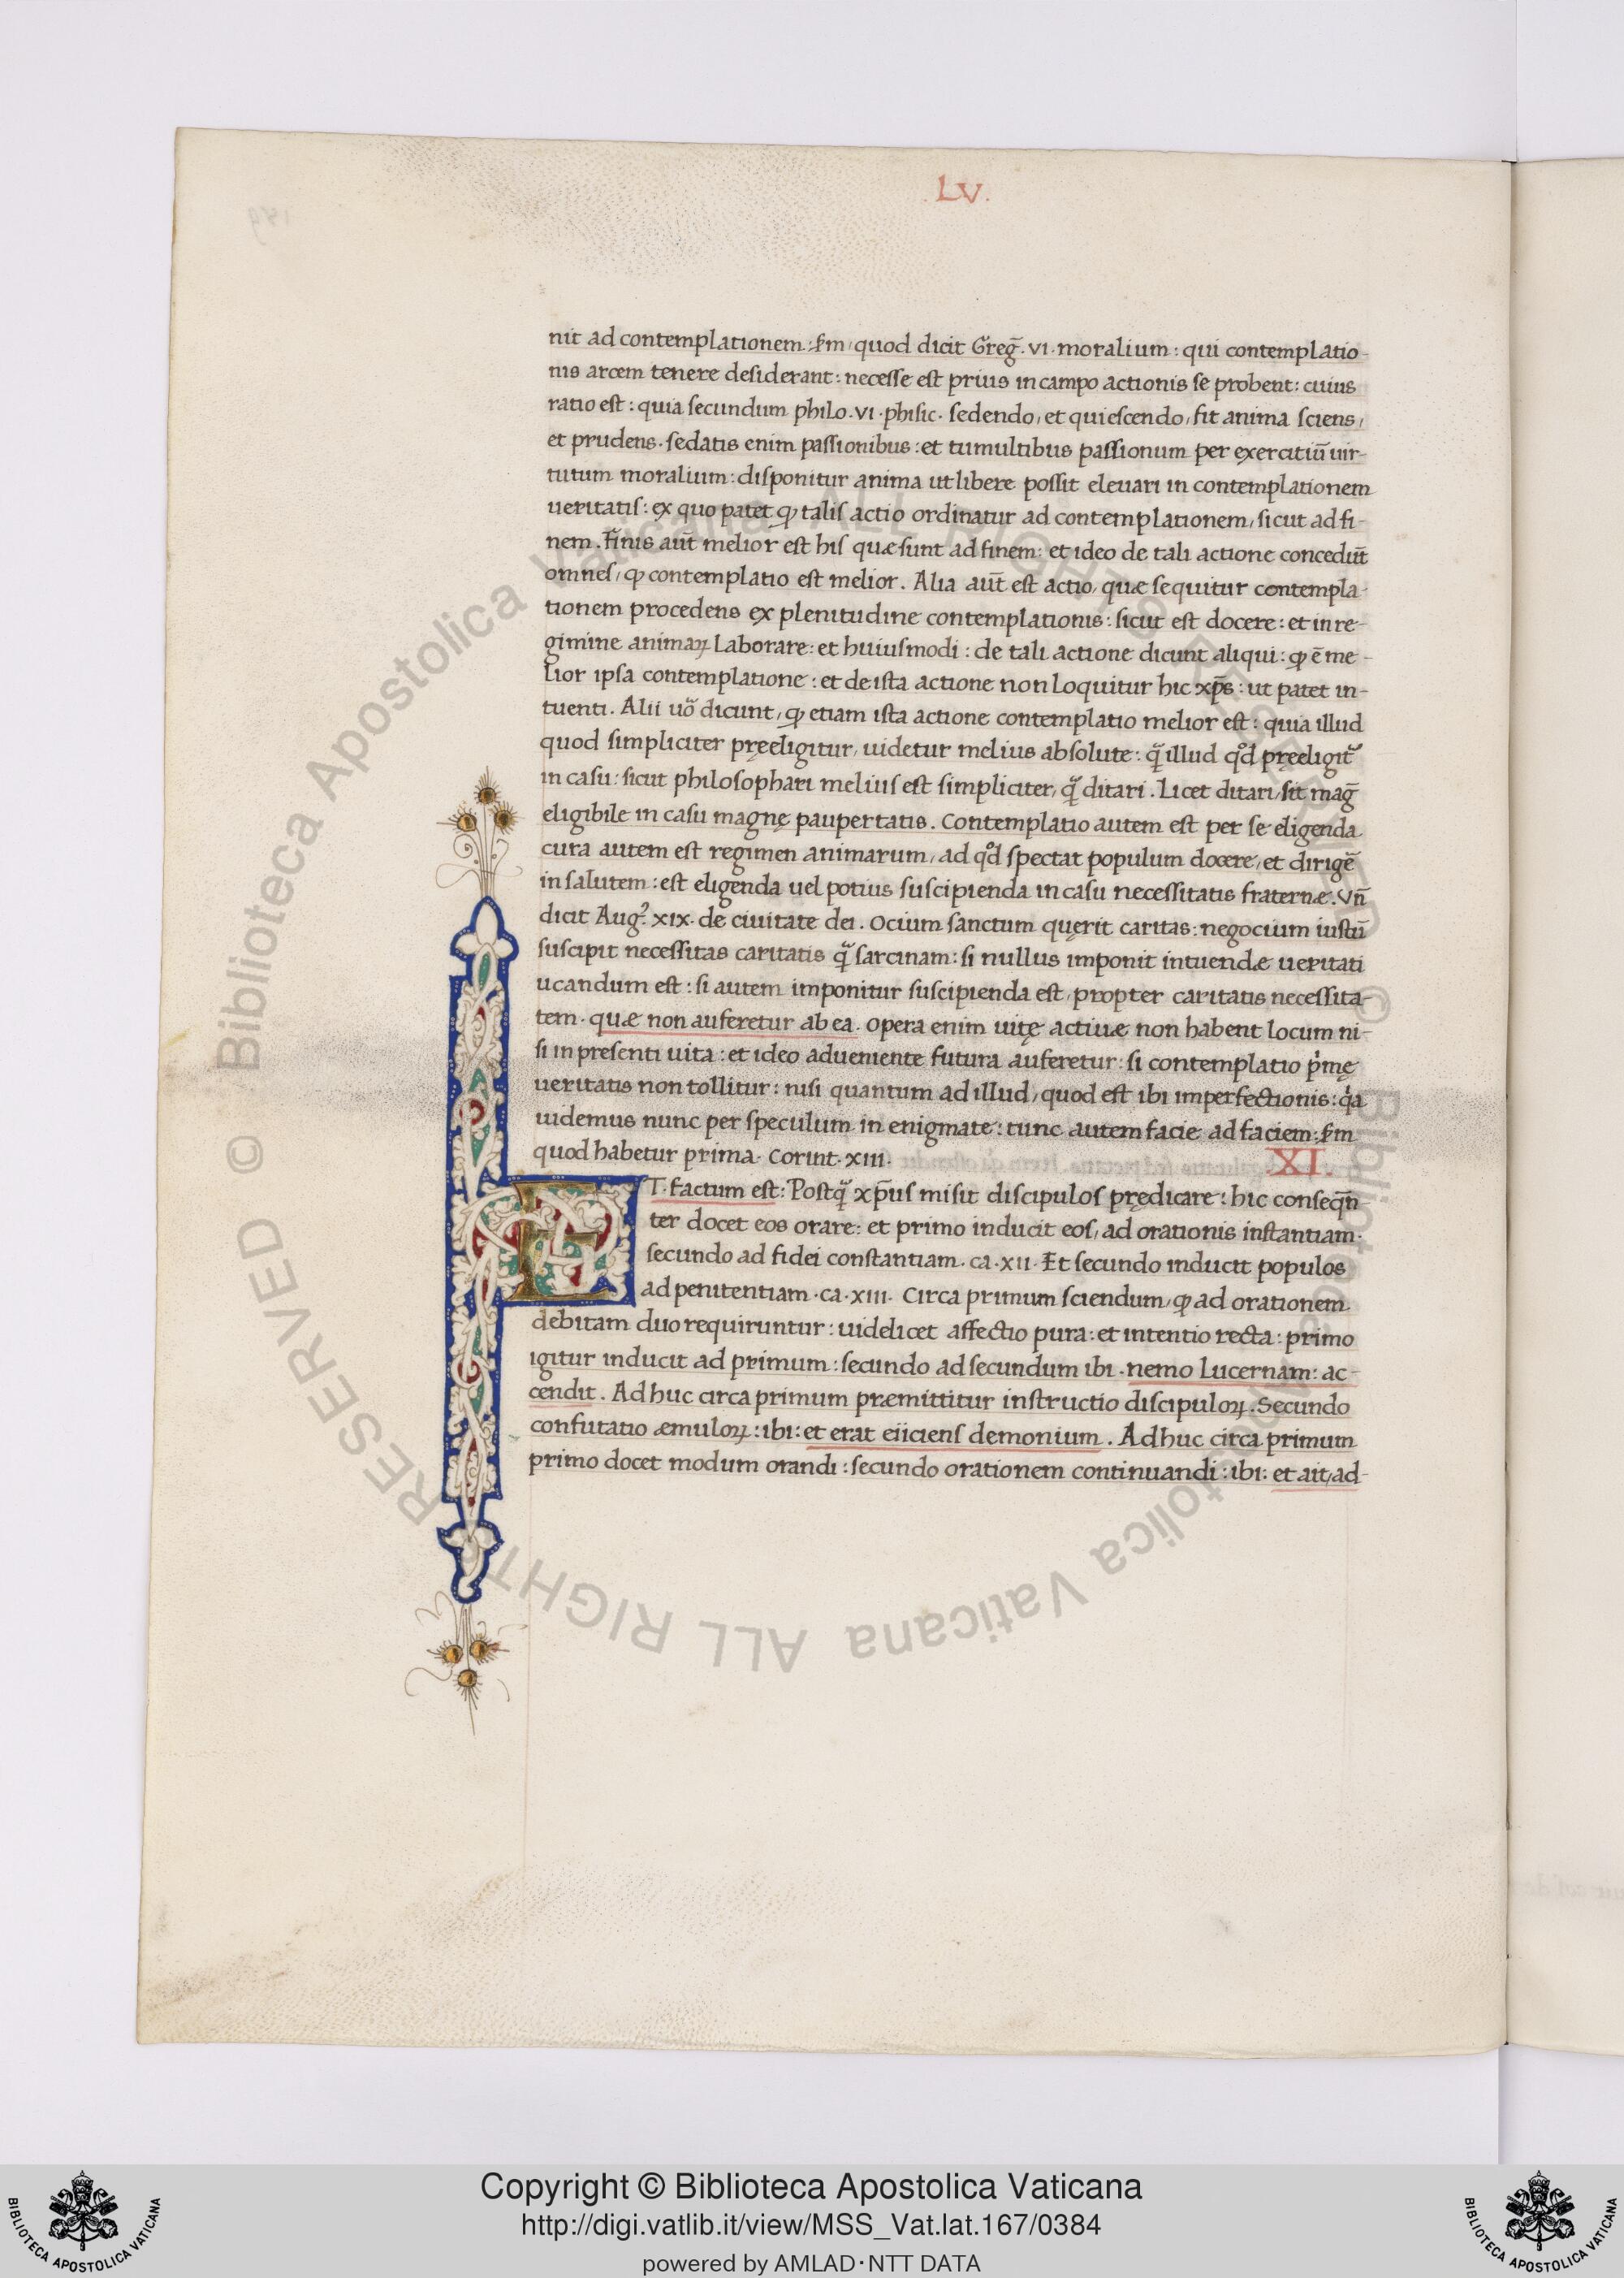 .LV.
nit ad contemplationem: s̄m, quod dicit Greḡ. vi. moralium: qui contemplatio-
nis arcem tenere desiderant: necesse est prius in campo actionis se probent: cuius
ratio est: quia secundum philo. vi. phisic. sedendo, et quiescendo, fit anima sciens,
et prudens. sedatis enim passionibus: et tumultibus passionum per exercitiū uir-
tutum moralium: disponitur anima ut libere possit eleuari in contemplationem
ueritatis: ex quo patet ꝙ talis actio ordinatur ad contemplationem, sicut ad fi-
nem. Finis aūt melior est his quæ sunt ad finem: et ideo de tali actione concedūt
omnes, ꝙ contemplatio est melior. Alia aūt est actio, quæ sequitur contempla-
tionem procedens ex plenitudine contemplationis: sicut est docere: et in re-
gimine animaꝝ laborare: et huiusmodi: de tali actione dicunt aliqui: ꝙ ē me-
lior ipsa contemplatione: et de ista actione non loquitur hic xp̄s: ut patet in-
tuenti. Alii uo᷑ dicunt, ꝙ etiam ista actione contemplatio melior est: quia illud
quod simpliciter pręeligitur, uidetur melius absolute: q̃ illud qd̊ pręeligit᷑
in casu: sicut philosophari melius est simpliciter, q̃ ditari. Licet ditari, sit mag̃
eligibile in casu magnę paupertatis. Contemplatio autem est per se eligenda
cura autem est regimen animarum, ad qd̊ spectat populum docere, et dirigē
in salutem: est eligenda uel potius suscipienda in casu necessitatis fraternæ. Vn̄
dicit Aug.ꝰ xix. de ciuitate dei. Ocium sanctum quęrit caritas: negocium iustū
suscipit necessitas caritatis q̃ sarcinam: si nullus imponit intuendæ ueritati
ucandum est: si autem imponitur suscipienda est, propter caritatis necessita-
tem. quæ non auferetur ab ea. opera enim uitę actiuæ non habent locum ni-
si in presenti uita: et ideo adueniente futura auferetur: si contemplatio p̍mę
ueritatis non tollitur: nisi quantum ad illud, quod est ibi imperfectionis: q̍a
uidemus nunc per speculum in enigmate: tunc autem facie ad faciem: s̄m
quod habetur prima. Corint. xiii. XI.
ET. factum est: Postq̃ xp̄us misit discipulos prędicare: hic conseq̄n
ter docet eos orare: et primo inducit eos, ad orationis instantiam.
secundo ad fidei constantiam. ca. xii. Et secundo inducit populos
ad penitentiam. ca. xiii. Circa primum sciendum, ꝙ ad orationem
debitam duo requiruntur: uidelicet affectio pura: et intentio recta: primo
igitur inducit ad primum: secundo ad secundum ibi. nemo lucernam: ac-
cendit. Adhuc circa primum præmittitur instructio discipuloꝝ. Secundo
confutatio æmuloꝝ: ibi: et erat eiiciens demonium. Adhuc circa primum
primo docet modum orandi: secundo orationem continuandi: ibi: et ait, ad-
© Biblioteca Apostolica Vaticana ALL RIGHTS RESERVED
© Biblioteca Apostolica Vaticana ALL RIGHTS RESERVED
Copyright © Biblioteca Apostolica Vaticana
http://digi.vatlib.it/view/MSS_Vat.lat.167/0384
powered by AMLAD·NTT DATA
BIBLIOTECA APOSTOLICA VATICANA
BIBLIOTECA APOSTOLICA VATICANA